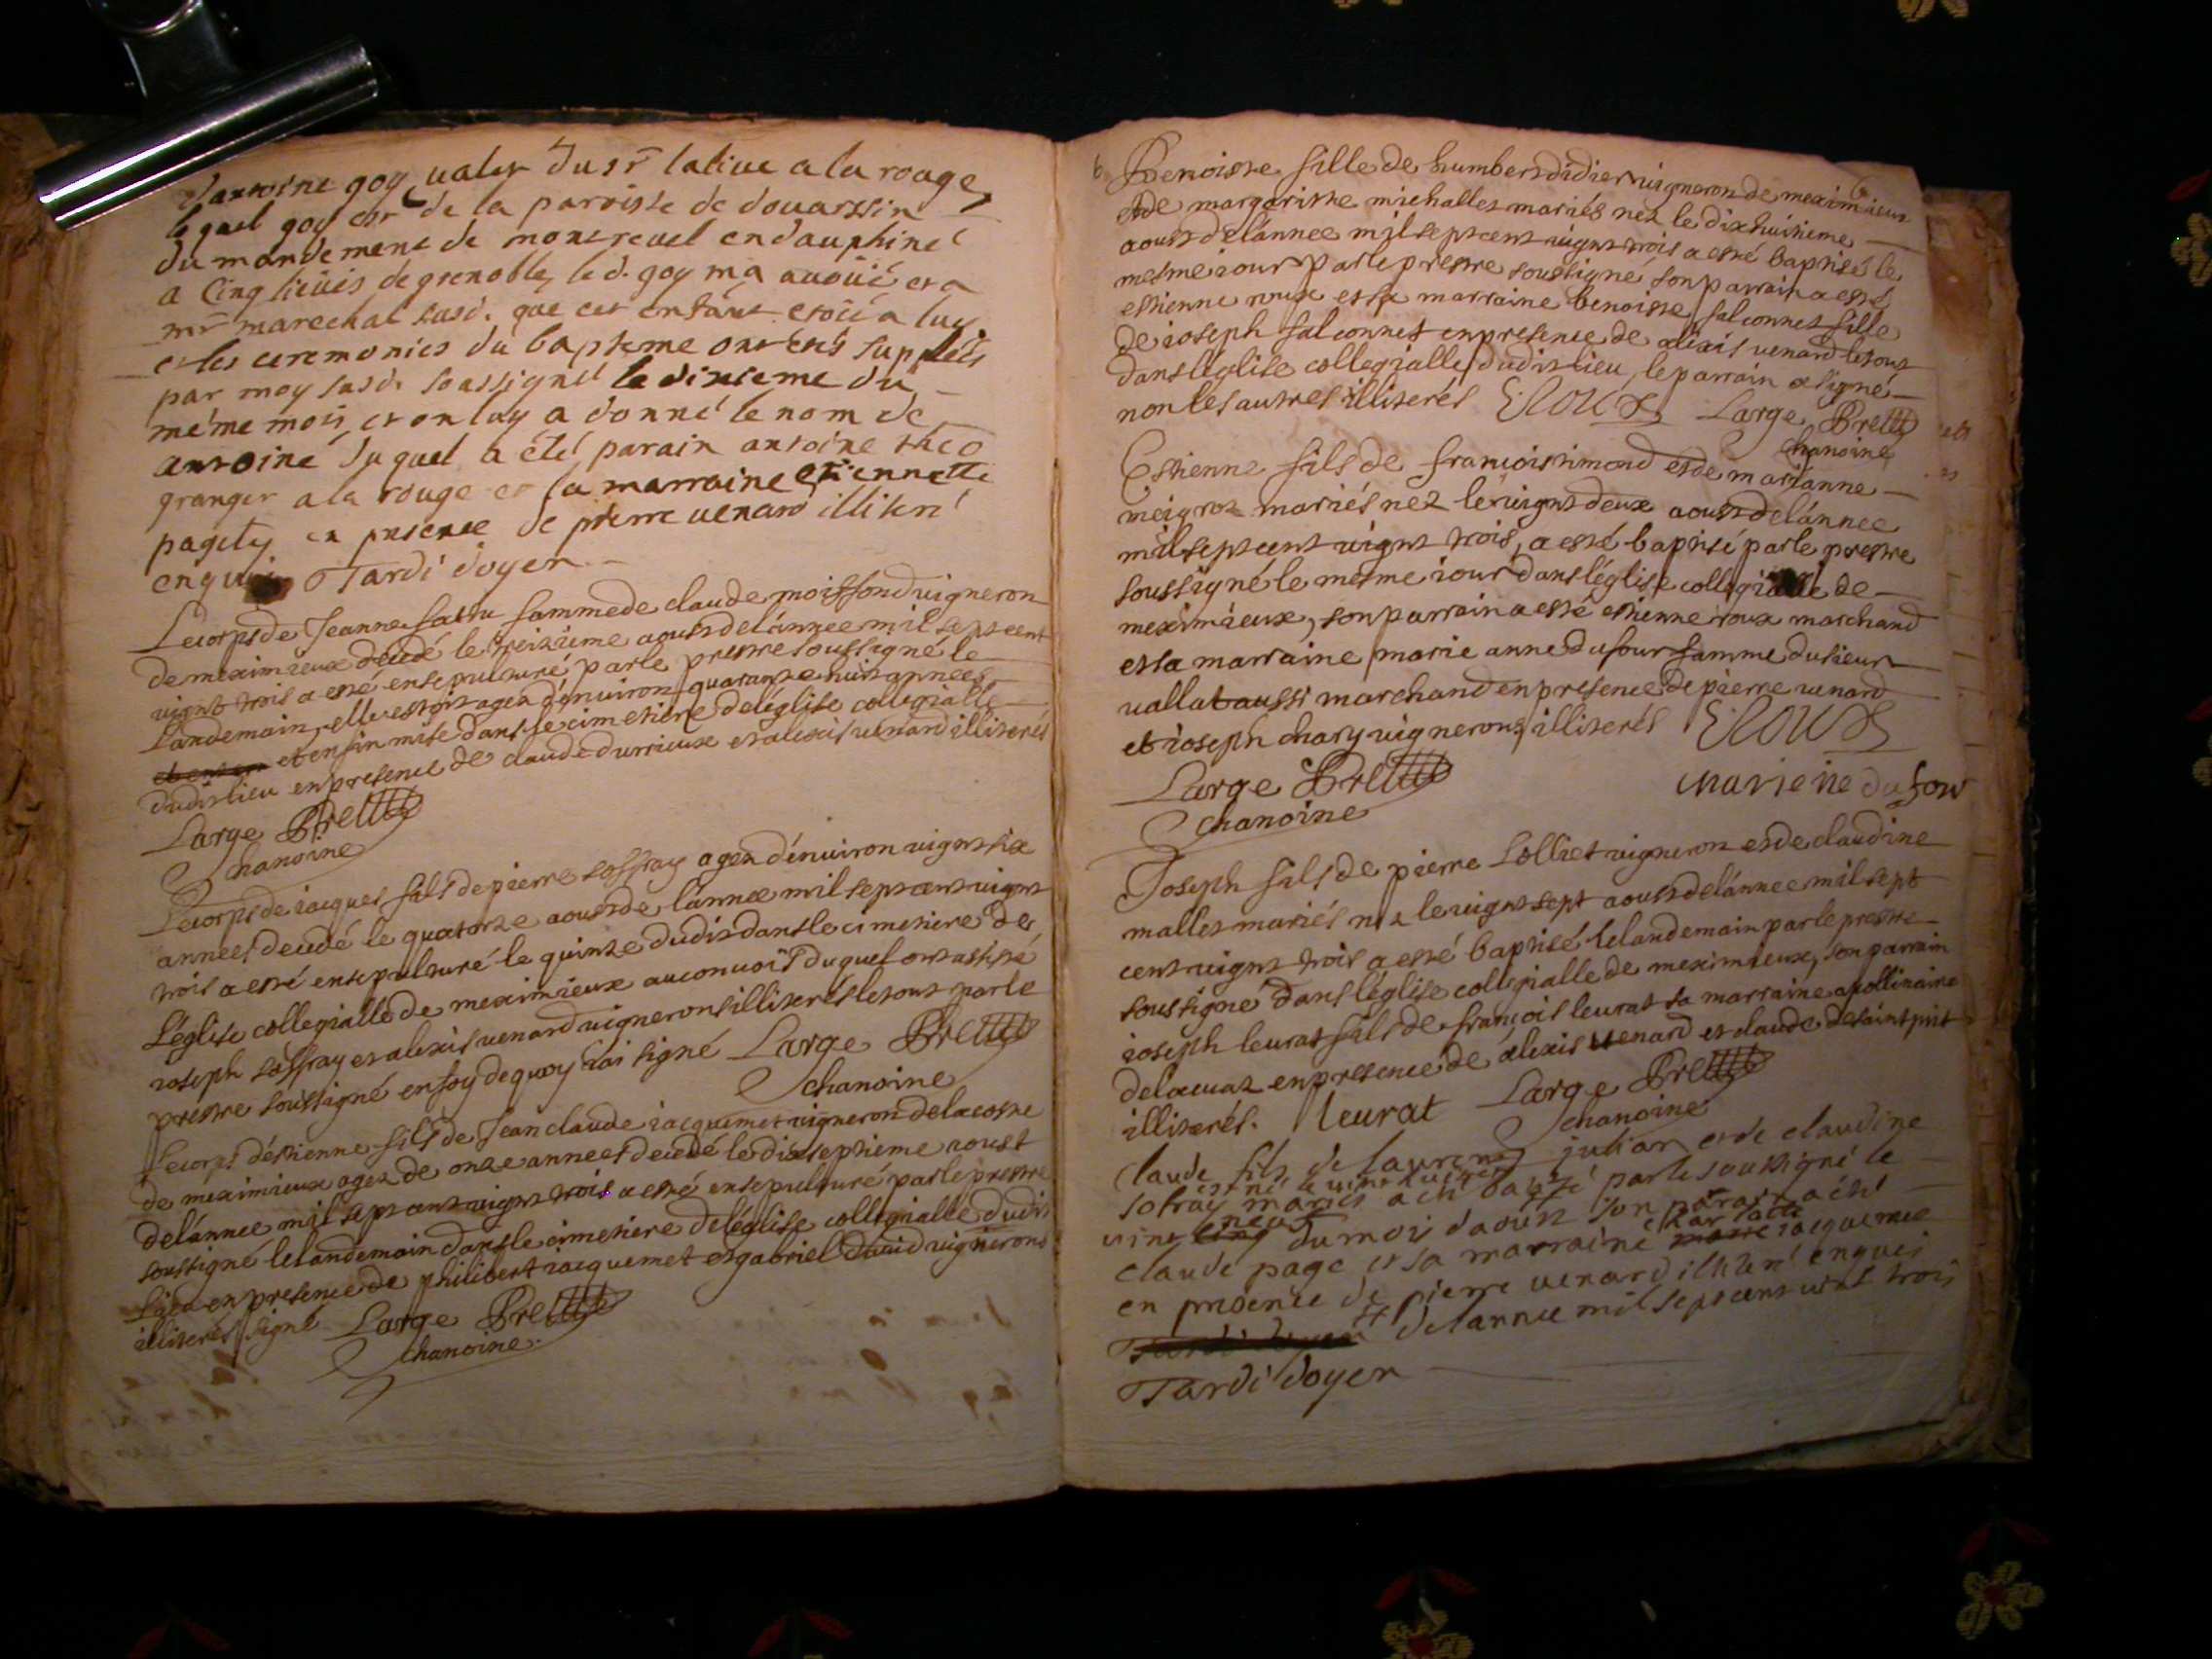 d'antoine goy valet du sr lalive a la rouge
lequel goy est de la paroisse de douarssin
du mandement de montrevel en dauphiné
a cinq lieües de grenoble, le d. goy m'a avoüé et a
mr marechal susd. que cet enfant etoit a luy
et les ceremonies du bapteme ont etés supplées
par moy susd. soussigné le dixieme du
même mois, et on luy a donné le nom de
antoine duquel a été parain antoine theo
granger a la rouge et sa marraine etiennette
pagety en presence de pierre venard illiteré
enquis Tardi doyen
Le corps de Jeanne fattu famme de claude moiffond vigneron
de meximieux decedé le treizieme aoust de l'année mil sept cent
vignt trois a esté ensepulturé par le prestre soussigné le
landemain, elle estoit agez d'environ quarante huit annees
et enfin mise dans le cimetiere de l'église collegialle
dudit lieu en presence de claude durrieux et alexis venard illiterés
Large Bret
chanoine
Le corps de iacques fils de pierre soffray agez d'environ vignt six
annees decedé le quatorze aoust de l'année mil sept cent vignt
trois a esté ensepulturé le quinze dudit dans le cimetiere de
l'église collegialle de meximieux au convois duquel ont assisté
ioseph soffray et alexis venard vignerons illiterés le tout par le
prestre soussigné en foy de quoy i'ai signé Large Bret
chanoine
Le corps d'estienne fils de Jean claude iacquemet vigneron de la coste
de meximieux agez de onze annees decedé le dixseptieme aoust
de l'année mil sept cent vignt trois a esté ensepulturé par le prestre
soussigné le landemain dans le cimetiere de l'église collegialle dudit
lieu en presence de philibert iacquemet et gabriel david vignerons
illiterés signé Large Bret
chanoine
6 Benoiste fille de humbert didier vigneron de meximieux
et de margueritte michallet mariés nez le dixhuitieme
aoust de l'année mil sept cent vignt trois a esté baptisé le
mesme iour par le prestre soussigné son parrain a esté
estienne roux et sa marraine benoiste falconnet fille
de ioseph falconnet en presence de alexis venard le tout
dans l'église collegialle dudit lieu, le parrain a signé
non les autres illiterés E. Roux Large Bret
chanoine
Estienne fils de francois simond et de marianne
meigroz mariés nez le vignt deux aoust de l'année
mil sept cent vignt trois, a esté baptisé par le prestre
soussigné le mesme iour dans l'église collegialle de
meximieux, son parrain a esté estienne roux marchand
et sa marraine marie anne dufour famme du sieur
vallat aussi marchand en presence de pierre venard
et ioseph chary vignerons illiterés E. Roux
Large Bret marie ne dufour
chanoine
Joseph fils de pierre Lolliet vigneron et de claudine
mallet mariés nez le vignt sept aoust de l'année mil sept
cent vignt trois a esté baptisé le landemain par le prestre
soussigné dans l'église collegialle de meximieux, son parrain
ioseph leurat fils de francois leurat sa marraine apollinaire
delacuaz en presence de alexis venard et claude desaintprit
illiterés. leurat Large Bret
chanoine
claude fils de laurent juliar et de claudine
est né le vint huitie
sofray mariés a eté batizé par le soussigné le
neuf
vint cinq du mois d'aoust son parrain a été
charlotte
claude page et sa marraine marie iacquemet
en presence de pierre venard illiteré enquis
Tardi doyen de l'année mil sept cent vint trois
Tardi doyen